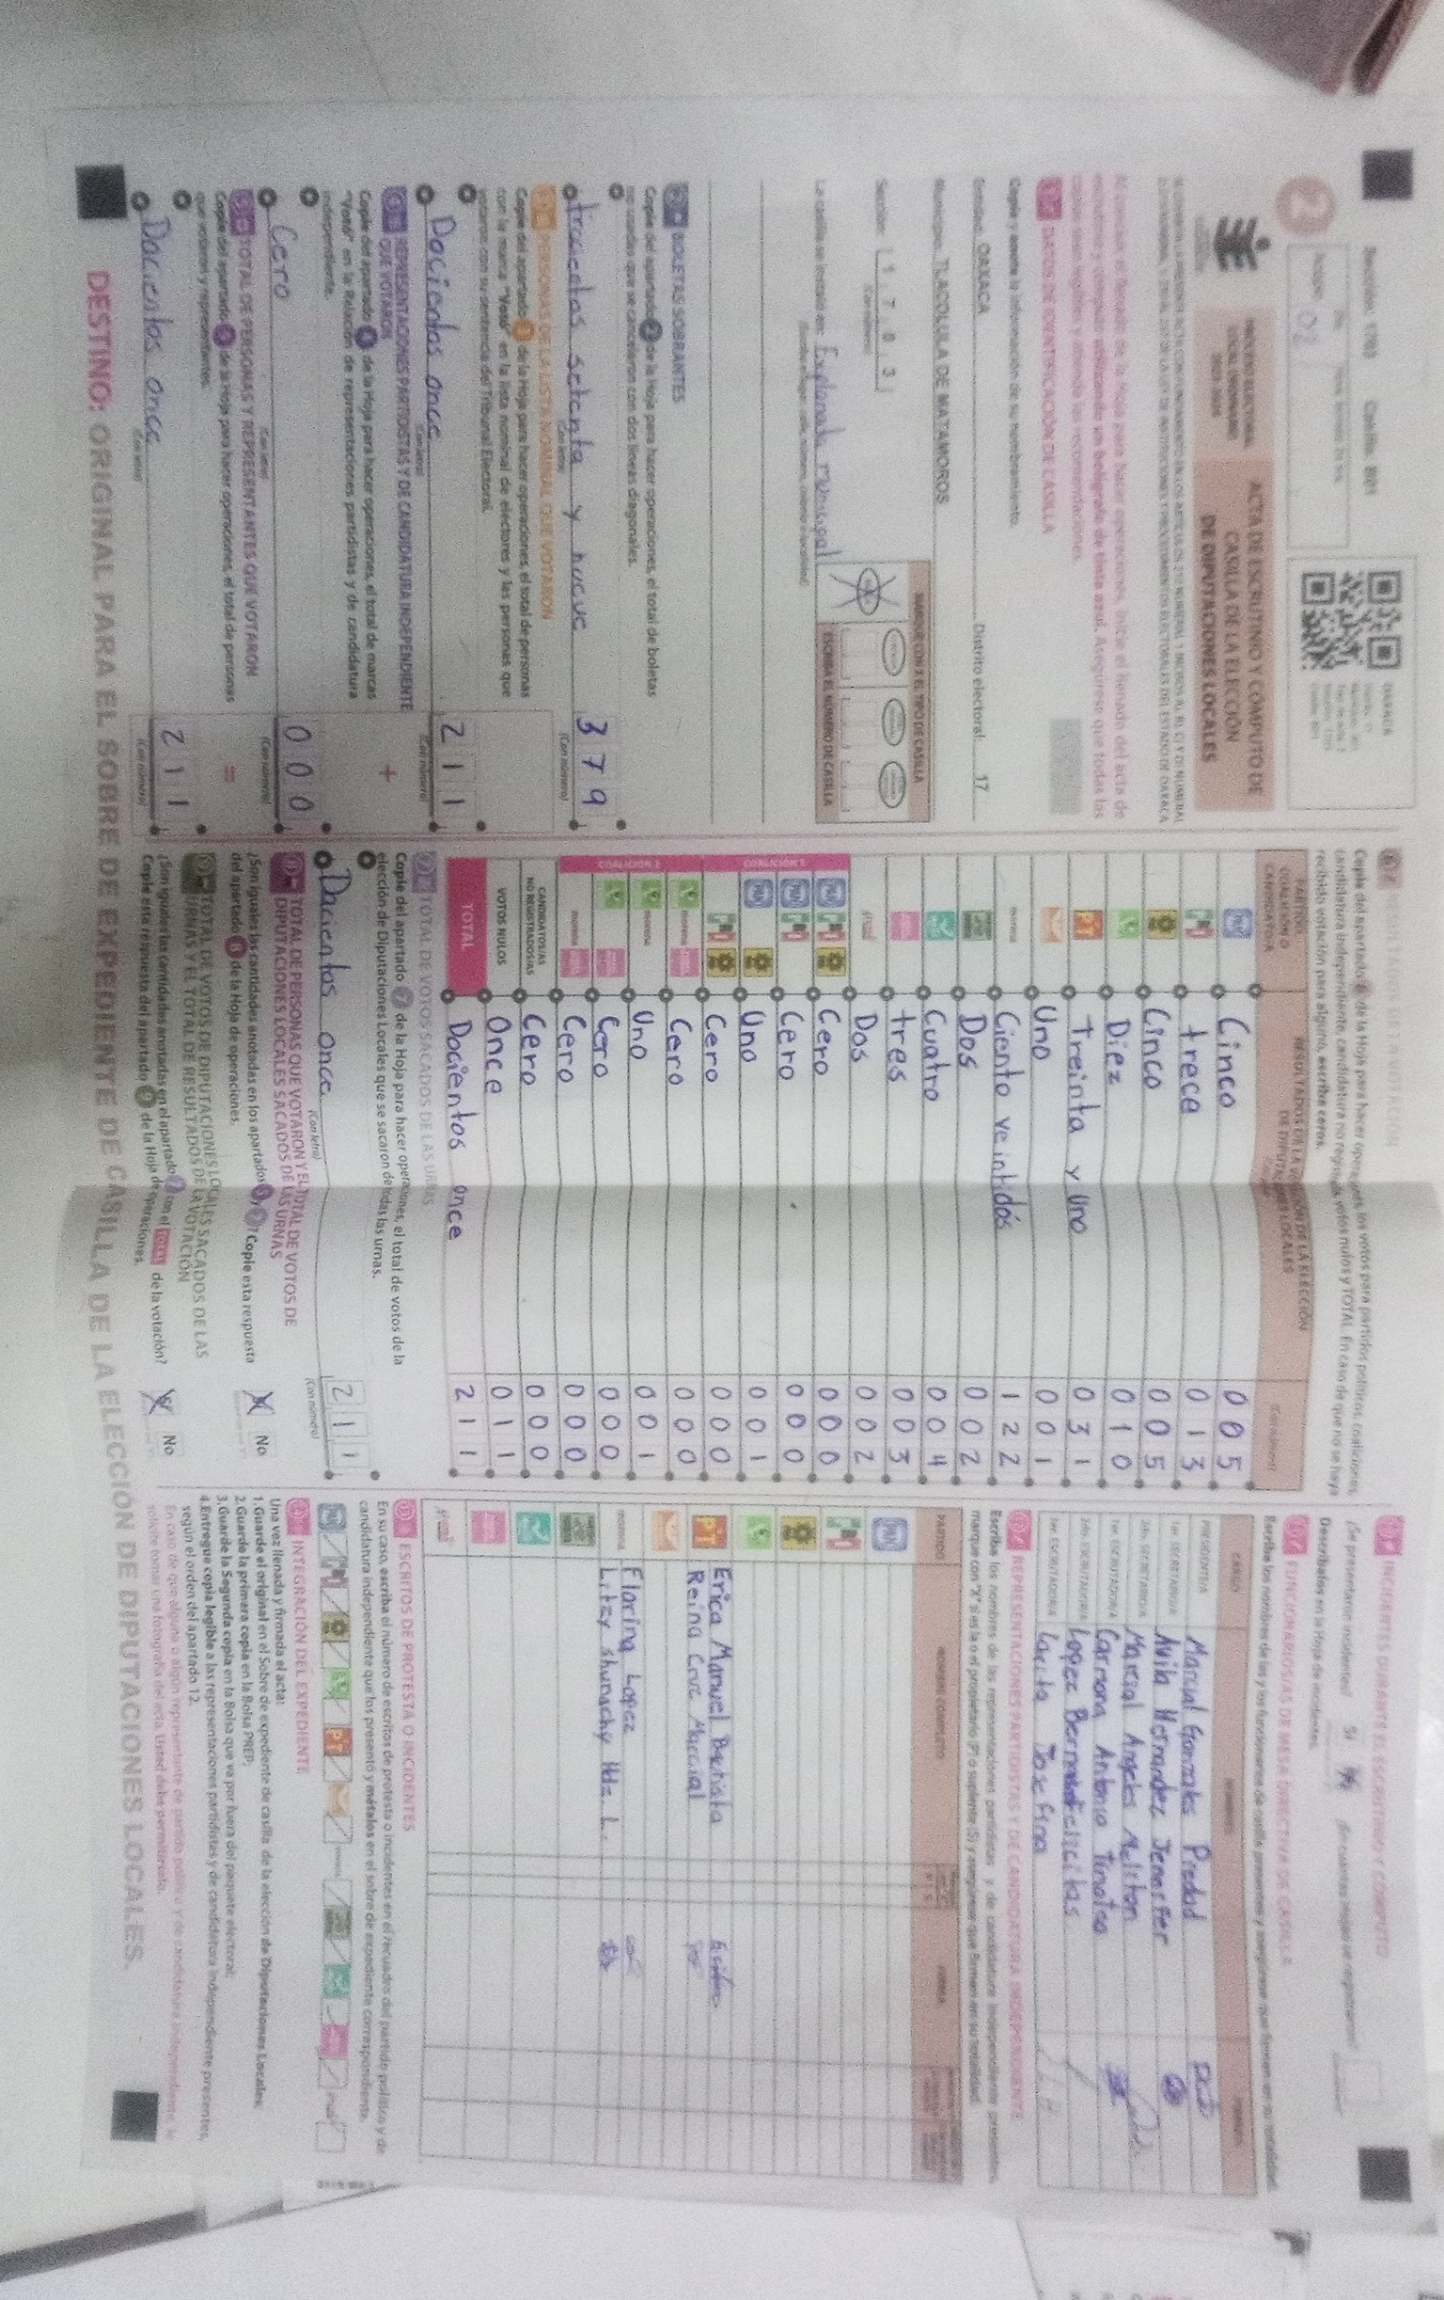 Sección: 1703 Casilla: B01
OAXACA
PROCESO ELECTORAL
LOCAL ORDINARIO
2023-2024
ACTA DE ESCRUTINIO Y CÓMPUTO DE
CASILLA DE LA ELECCIÓN
DE DIPUTACIONES LOCALES
DATOS DE IDENTIFICACIÓN DE CASILLA
Copie y anote la información de su nombramiento.
Entidad: OAXACA Distrito electoral: 17
Municipio: TLACOLULA DE MATAMOROS
Sección: 1 7 0 3
(Con número)
MARQUE CON X EL TIPO DE CASILLA
ESCRIBA EL NÚMERO DE CASILLA
La casilla se instaló en: Explanada municipal
BOLETAS SOBRANTES
Copie del apartado 2 de la Hoja para hacer operaciones, el total de boletas
no usadas que se cancelaron con dos líneas diagonales.
trocientas setenta y nueve 379
(Con letra) (Con número)
PERSONAS DE LA LISTA NOMINAL QUE VOTARON
Copie del apartado 3 de la Hoja para hacer operaciones, el total de personas
con la marca "Votó" en la lista nominal de electores y las personas que
votaron con su sentencia del Tribunal Electoral.
Docientos once 211
(Con letra) (Con número)
REPRESENTACIONES PARTIDISTAS Y DE CANDIDATURA INDEPENDIENTE
QUE VOTARON
Copie del apartado 4 de la Hoja para hacer operaciones, el total de marcas
"Votó" en la Relación de representaciones partidistas y de candidatura
independiente.
+
Cero 000
(Con letra) (Con número)
TOTAL DE PERSONAS Y REPRESENTANTES QUE VOTARON
Copie del apartado 5 de la Hoja para hacer operaciones, el total de personas
que votaron y representantes.
=
Docientos once 211
(Con letra) (Con número)
Copie del apartado 8 de la Hoja para hacer operaciones, los votos para partidos políticos, coaliciones,
candidatura independiente, candidatura no registrada, votos nulos y TOTAL. En caso de que no se haya
recibido votación para alguno, escriba ceros.
PARTIDO,
COALICIÓN O
CANDIDATO/A
RESULTADOS DE LA VOTACIÓN DE LA ELECCIÓN
DE DIPUTACIONES LOCALES
PAN Cinco 005
PRI trece 013
Cinco 005
Diez 010
PT Treinta y uno 031
Uno 001
morena Ciento veintidós 122
Dos 002
Cuatro 004
tres 003
Dos 002
COALICIÓN 1
Cero 000
Cero 000
Uno 001
Cero 000
COALICIÓN 2
Cero 000
Uno 001
Cero 000
Cero 000
CANDIDATOS/AS
NO REGISTRADOS/AS Cero 000
VOTOS NULOS Once 011
TOTAL Docientos once 211
TOTAL DE VOTOS SACADOS DE LAS URNAS
Copie del apartado 7 de la Hoja para hacer operaciones, el total de votos de la
elección de Diputaciones Locales que se sacaron de todas las urnas.
Docientos once 211
(Con letra) (Con número)
TOTAL DE PERSONAS QUE VOTARON Y EL TOTAL DE VOTOS DE
DIPUTACIONES LOCALES SACADOS DE LAS URNAS
¿Son iguales las cantidades anotadas en los apartados 5 y 7? Copie esta respuesta
del apartado de la Hoja de operaciones.
No
TOTAL DE VOTOS DE DIPUTACIONES LOCALES SACADOS DE LAS
URNAS Y EL TOTAL DE RESULTADOS DE LA VOTACIÓN
¿Son iguales las cantidades anotadas en el apartado 7 con el TOTAL de la votación?
Copie esta respuesta del apartado 9 de la Hoja de operaciones.
No
INCIDENTES DURANTE EL ESCRUTINIO Y CÓMPUTO
¿Se presentaron incidentes? Sí No
Descríbalos en la Hoja de incidentes.
FUNCIONARIOS/AS DE MESA DIRECTIVA DE CASILLA
Escriba los nombres de las y los funcionarios de casilla presentes y asegúrese que firmen en su totalidad.
CARGO NOMBRE FIRMA
PRESIDENTE/A Marcial Gonzales Piedad
1er. SECRETARIO/A Avila Hernandez Jennifer
2do. SECRETARIO/A Marcial Angeles Meliton
1er. ESCRUTADOR/A Carmona Antonio Timotea
2do. ESCRUTADOR/A Lopez Felicitas
3er. ESCRUTADOR/A Josefina
REPRESENTACIONES PARTIDISTAS Y DE CANDIDATURA INDEPENDIENTE
Escriba los nombres de las representaciones partidistas y de candidatura independiente presentes,
marque con "X" si es la o el propietario (P) o suplente (S) y asegúrese que firmen en su totalidad.
PARTIDO NOMBRE COMPLETO FIRMA
PT Erica Manuel Bautista
Reina Cruz Marcial
morena Florina Lopez
Litzy Shunashy Hdz. L.
ESCRITOS DE PROTESTA O INCIDENTES
En su caso, escriba el número de escritos de protesta o incidentes en el recuadro del partido político y de
candidatura independiente que los presentó y métalos en el sobre de expediente correspondiente.
INTEGRACIÓN DEL EXPEDIENTE
Una vez llenada y firmada el acta:
1.Guarde el original en el Sobre de expediente de casilla de la elección de Diputaciones Locales;
2.Guarde la primera copia en la Bolsa PREP;
3.Guarde la Segunda copia en la Bolsa que va por fuera del paquete electoral;
4.Entregue copia legible a las representaciones partidistas y de candidatura independiente presentes,
según el orden del apartado 12.
DESTINO: ORIGINAL PARA EL SOBRE DE EXPEDIENTE DE CASILLA DE LA ELECCIÓN DE DIPUTACIONES LOCALES.